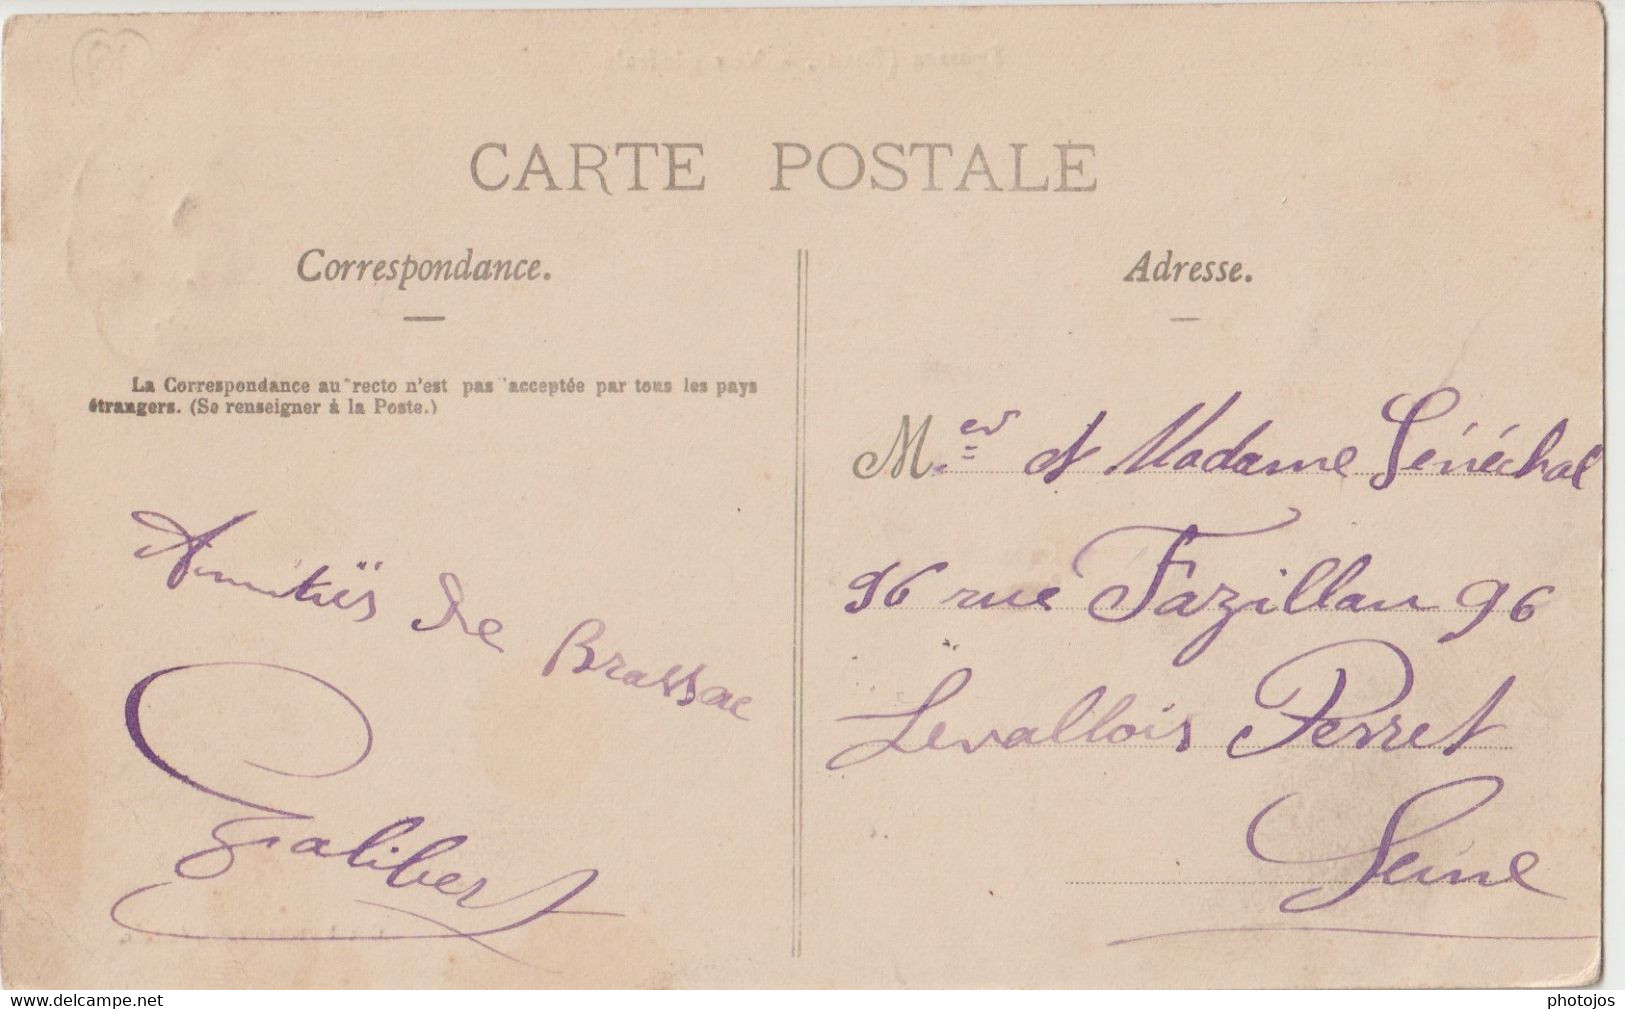 CARTE POSTALE
Correspondance.
La Correspondance au recto n'est pas acceptée par tous les pays
étrangers. (Se renseigner à la Poste.)
Amitiés de Brassac
Galibert
Adresse.
M.er et Madame Sénéchal
96 rue Fazillau 96
Levallois Perret
Seine
www.delcampe.net
photojos